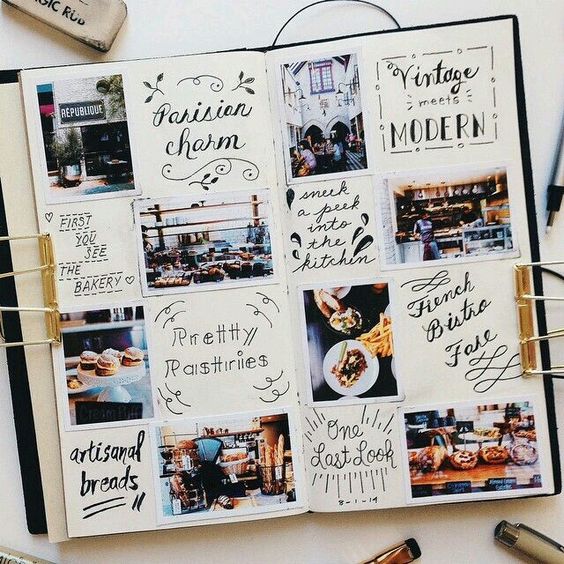 GIC RUB
RÉPUBLIQUE
Parisian
charm
FIRST
YOU
SEE
THE
BAKERY
Pretty
Pastries
Cream Puff
artisanal
breads
Vintage
meets
MODERN
sneek
a peek
into
the
kitchen
French
Bistro
Fare
One
Last Look